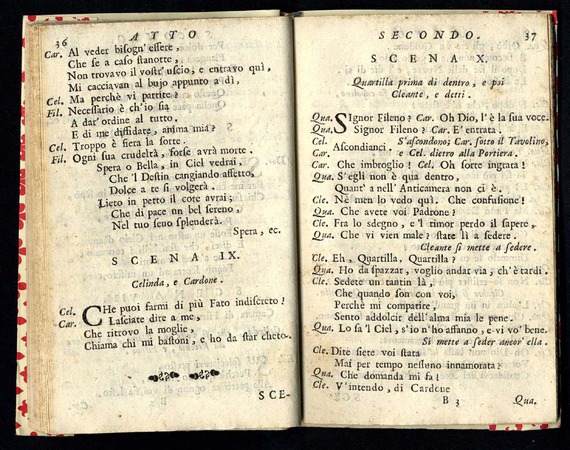 36
ATTO
Car. Al veder bisogn' essere,
Che se a caso stanotte,
Non trovavo il vostr' uscio, e entravo quì,
Mi cacciavan al bujo appunto a dì,
Cel. Ma perchè vi partite?
Fil. Necessario è ch' io sia
A dar' ordine al tutto.
E di me diffidate, anima mia?
Cel. Troppo è fiera la sorte.
Fil. Ogni sua crudeltà, forse avrà morte.
Spera o Bella, in Ciel vedrai,
Che 'l Destin cangiando affetto,
Dolce a te si volgerà.
Lieto in petto il core avrai;
Che di pace un bel sereno,
Nel tuo seno splenderà.
Spera, ec.
SCENA IX.
Celinda, e Cardone.
Cel. CHe puoi farmi di più Fato indiscreto!
Car. Lasciate dite a me,
Che ritrovo la moglie,
Chiama chi mi bastoni, e ho da star cheto.
SCE-
SECONDO.
37
SCENA X.
Quartilla prima di dentro, e poi
Cleante, e detti.
Qua. SIgnor Fileno? Car. Oh Dio, l' è la sua voce.
Qua. Signor Fileno? Car. E' entrata.
Cel. S'ascondono; Car. sotto il Tavolino,
Car. Ascondianci. e Cel. dietro alla Portiera.
Car. Che imbroglio! Cel. Oh sorte ingrata!
Qua. S'egli non è qua dentro,
Quant' a nell' Anticamera non ci è.
Cle. Nè men lo vedo quì. Che confusione!
Qua. Che avete voi Padrone?
Cle. Fra lo sdegno, e 'l timor perdo il sapere,
Qua. Che vi vien male? state lì a sedere.
Cleante si mette a sedere.
Cle. Eh, Quartilla, Quartilla?
Qua. Ho da spazzar, voglio andar via; ch' è tardi.
Cle. Sedete un tantin là,
Che quando son con voi,
Perchè mi compatite,
Sento addolcir dell' alma mia le pene.
Qua. Lo sa 'l Ciel, s'io n' ho affanno, e vi vo' bene.
Si mette a seder ancor' ella.
Cle. Dite siete voi stata
Mai per tempo nessuno innamorata?
Qua. Che domanda mi fa!
Cle. V'intendo, di Cardone
B 3
Qua.